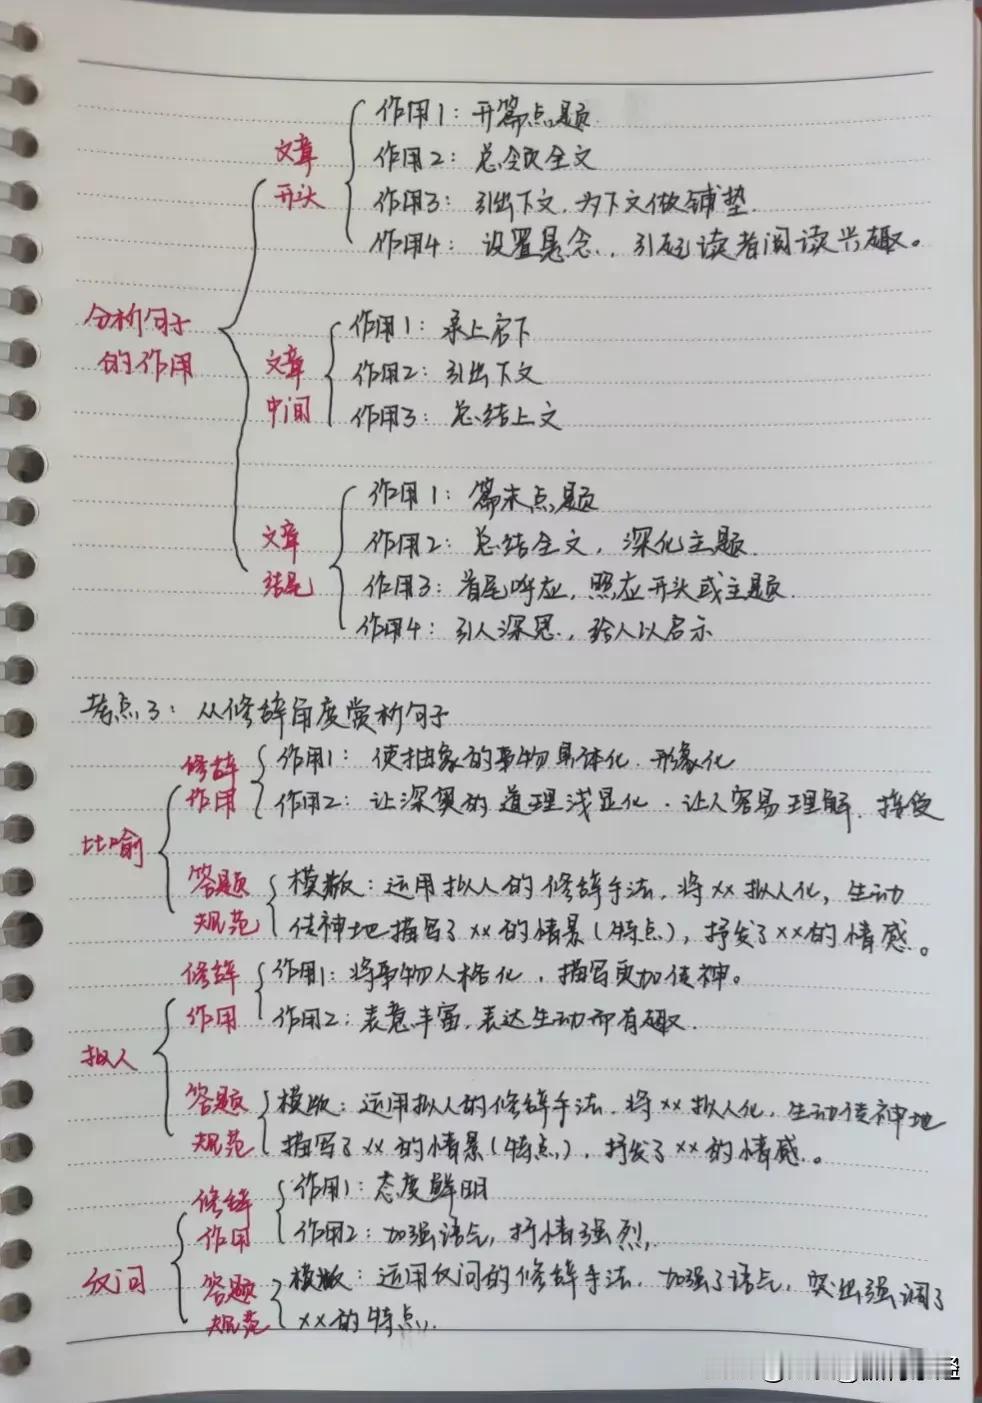 分析句子
的作用
文章
开头
作用1：开篇点题
作用2：总领全文
作用3：引出下文，为下文做铺垫.
作用4：设置悬念，引起读者阅读兴趣。
文章
中间
作用1：承上启下
作用2：引出下文
作用3：总结上文
文章
结尾
作用1：篇末点题
作用2：总结全文，深化主题.
作用3：首尾呼应，照应开头或主题.
作用4：引人深思，给人以启示
考点3：从修辞角度赏析句子
比喻
修辞
作用
作用1：使抽象的事物具体化.形象化
作用2：让深奥的道理浅显化.让人容易理解.接受
答题
规范
模版：运用拟人的修辞手法，将××拟人化，生动
传神地描写了××的情景（特点），抒发了××的情感。
拟人
修辞
作用
作用1：将事物人格化，描写更加传神。
作用2：表意丰富，表达生动而有趣.
答题
规范
模版：运用拟人的修辞手法.将××拟人化，生动传神地
描写了××的情景（特点），抒发了××的情感。
反问
修辞
作用
作用1：态度鲜明
作用2：加强语气，抒情强烈.
答题
规范
模版：运用反问的修辞手法.加强了语气，突出强调了
××的特点.